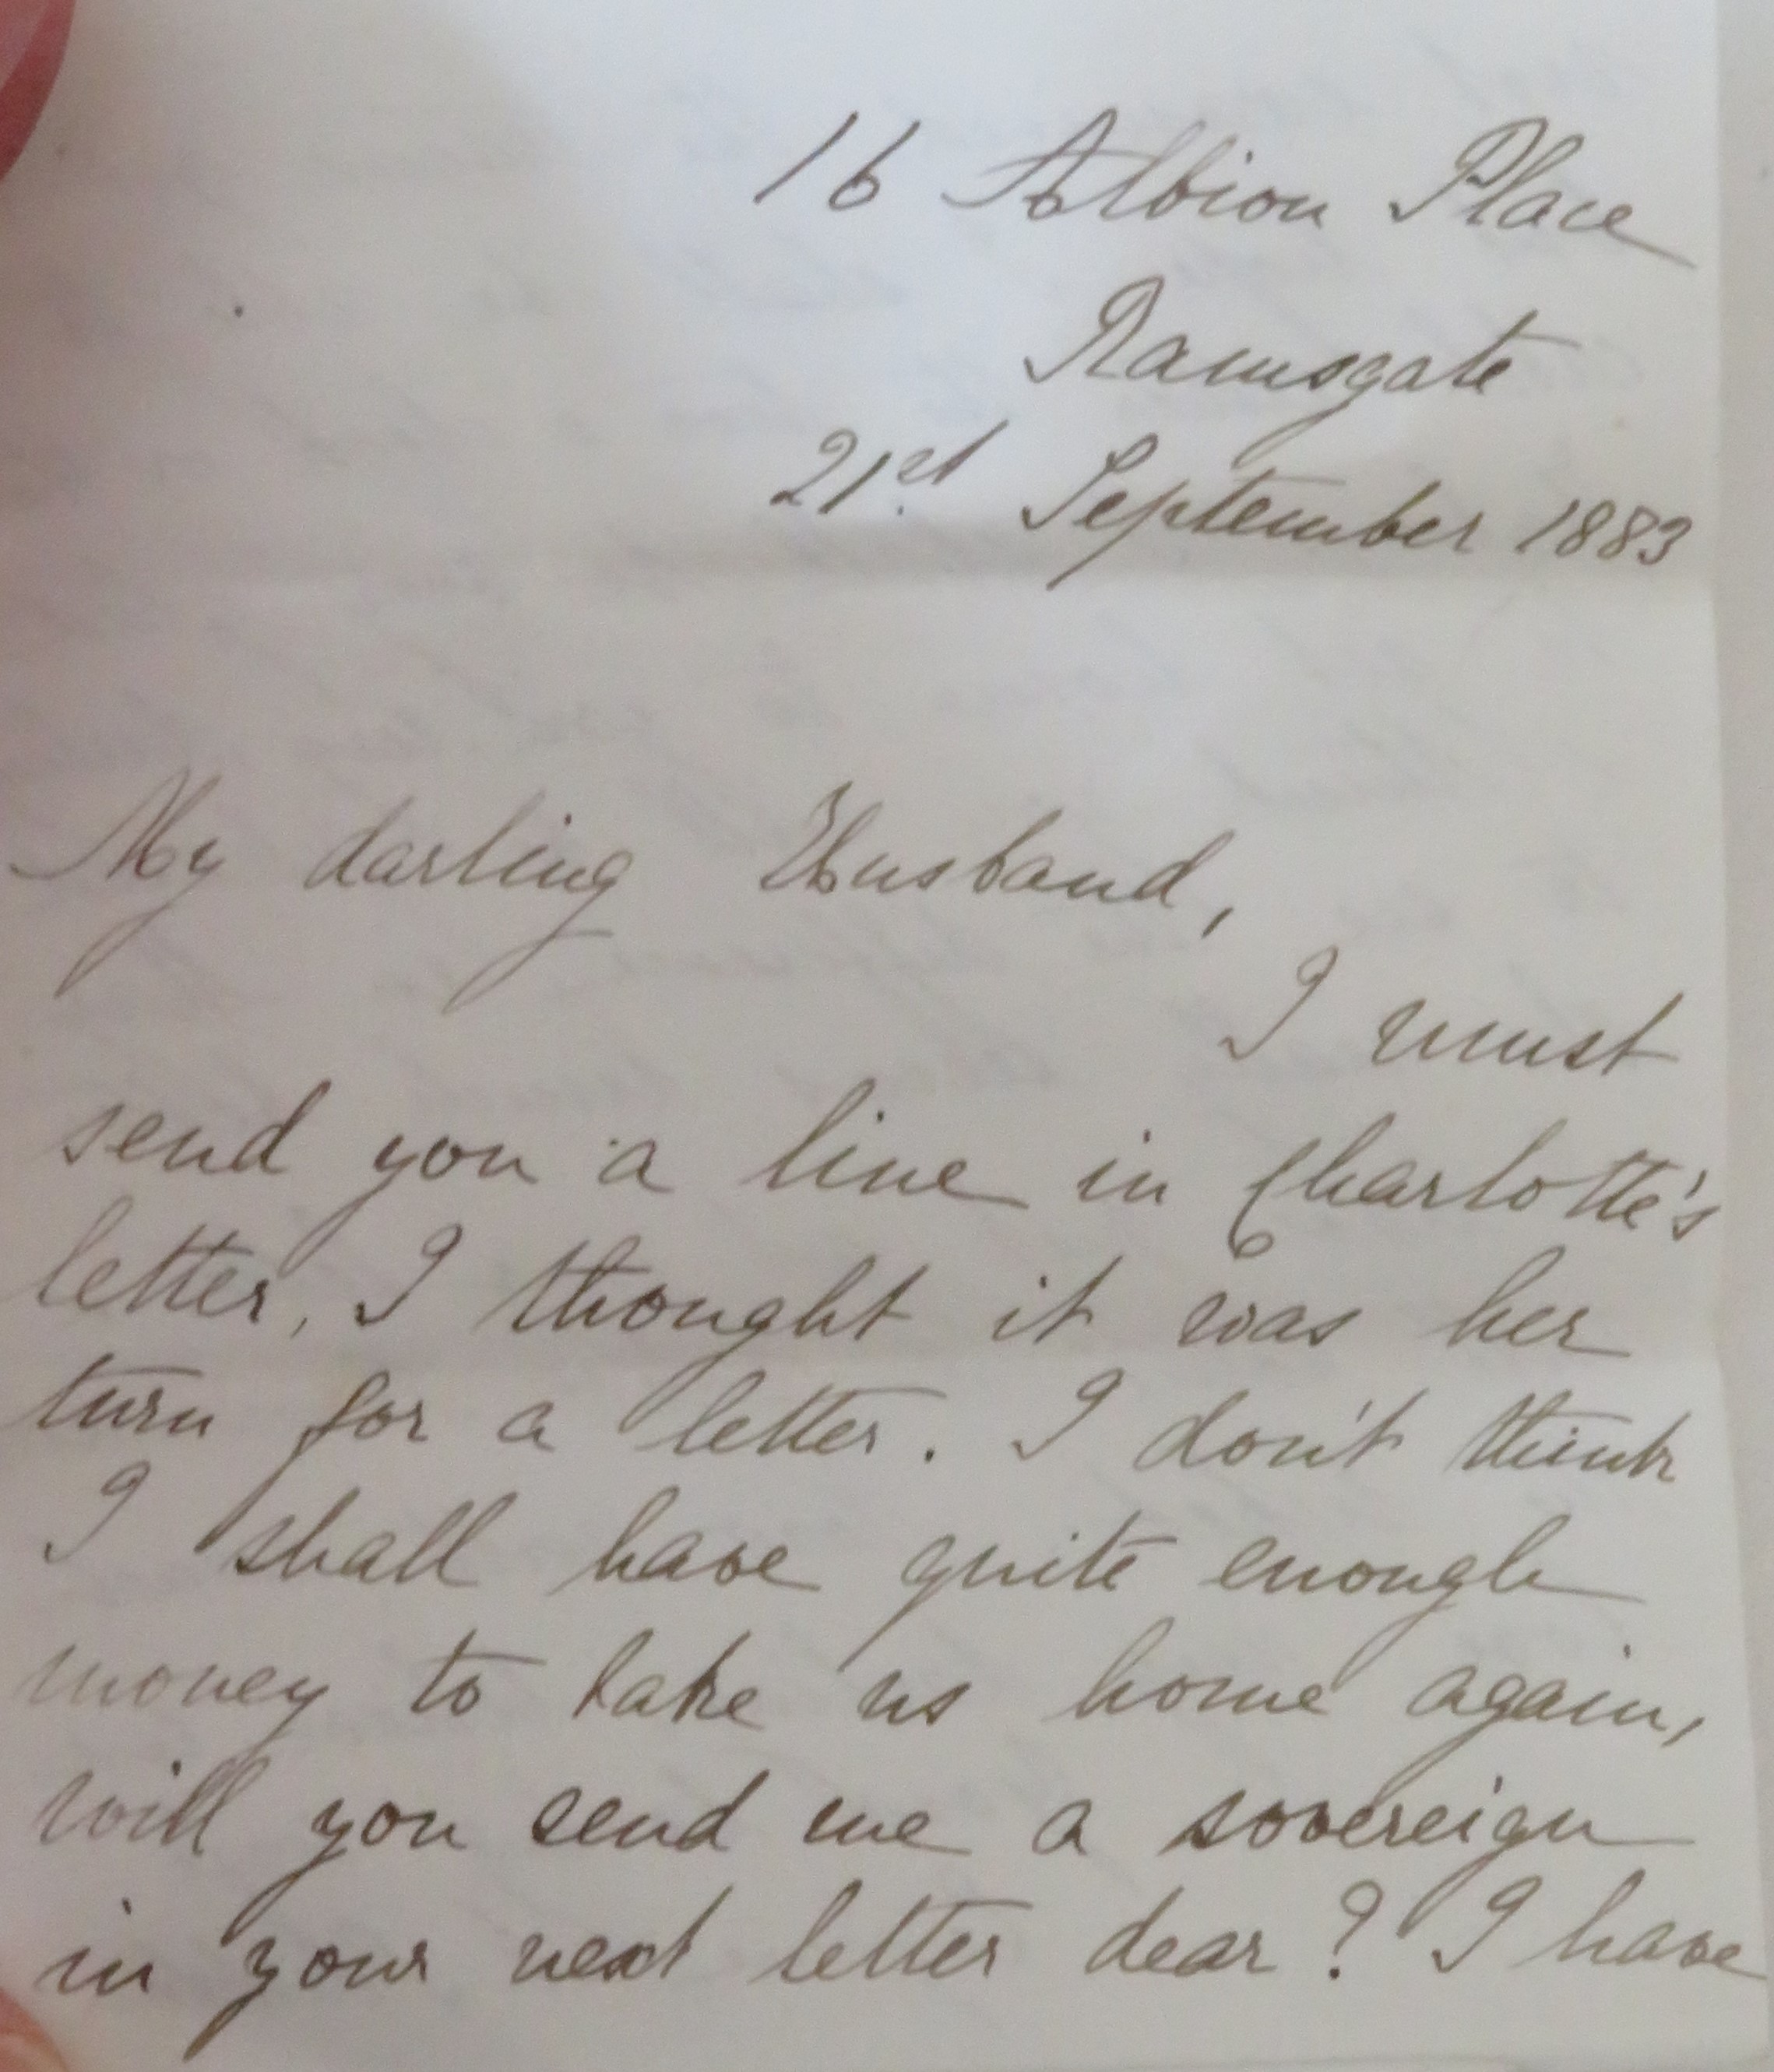 16 Albion Place
Ramsgate
21st September 1883
My darling Husband,
I must
send you a line in Charlotte's
letter, I thought it was her
turn for a letter. I don't think
I shall have quite enough
money to take us home again,
will you send me a sovereign
in your next letter dear? I have